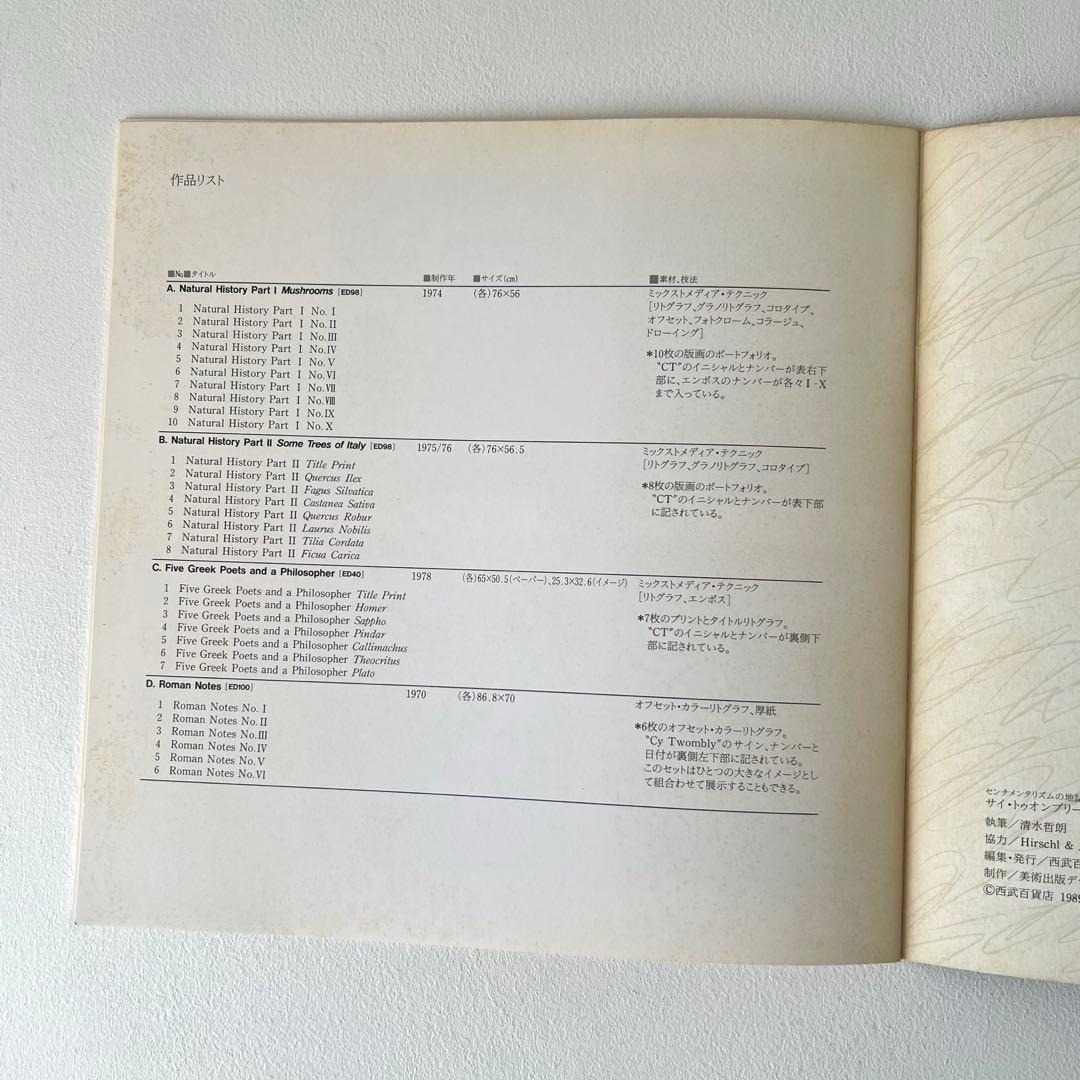 作品リスト
■No.■タイトル ■制作年 ■サイズ(cm) ■素材、技法
A. Natural History Part I Mushrooms [ED98] 1974 (各)76×56 ミックストメディア・テクニック
[リトグラフ、グラノリトグラフ、コロタイプ、
オフセット、フォトクローム、コラージュ、
ドローイング]
1 Natural History Part I No. I
2 Natural History Part I No. II
3 Natural History Part I No. III
4 Natural History Part I No. IV
5 Natural History Part I No. V
6 Natural History Part I No. VI
7 Natural History Part I No. VII
8 Natural History Part I No. VIII
9 Natural History Part I No. IX
10 Natural History Part I No. X
*10枚の版画のポートフォリオ。
"CT"のイニシャルとナンバーが表右下
部に、エンボスのナンバーが各々I-X
まで入っている。
B. Natural History Part II Some Trees of Italy [ED98] 1975/76 (各)76×56.5 ミックストメディア・テクニック
[リトグラフ、グラノリトグラフ、コロタイプ]
1 Natural History Part II Title Print
2 Natural History Part II Quercus Ilex
3 Natural History Part II Fagus Silvatica
4 Natural History Part II Castanea Sativa
5 Natural History Part II Quercus Robur
6 Natural History Part II Laurus Nobilis
7 Natural History Part II Tilia Cordata
8 Natural History Part II Ficua Carica
*8枚の版画のポートフォリオ。
"CT"のイニシャルとナンバーが表下部
に記されている。
C. Five Greek Poets and a Philosopher [ED40] 1978 (各)65×50.5(ペーパー)、25.3×32.6(イメージ) ミックストメディア・テクニック
[リトグラフ、エンボス]
1 Five Greek Poets and a Philosopher Title Print
2 Five Greek Poets and a Philosopher Homer
3 Five Greek Poets and a Philosopher Sappho
4 Five Greek Poets and a Philosopher Pindar
5 Five Greek Poets and a Philosopher Callimachus
6 Five Greek Poets and a Philosopher Theocritus
7 Five Greek Poets and a Philosopher Plato
*7枚のプリントとタイトルリトグラフ。
"CT"のイニシャルとナンバーが裏側下
部に記されている。
D. Roman Notes [ED100] 1970 (各)86.8×70 オフセット・カラーリトグラフ、厚紙
1 Roman Notes No. I
2 Roman Notes No. II
3 Roman Notes No. III
4 Roman Notes No. IV
5 Roman Notes No. V
6 Roman Notes No. VI
*6枚のオフセット・カラーリトグラフ。
"Cy Twombly"のサイン、ナンバーと
日付が裏側左下部に記されている。
このセットはひとつの大きなイメージとし
て組合わせて展示することもできる。
センチメンタリズムの地
サイ・トゥオンブリー
執筆/清水哲朗
協力/Hirschl &
編集・発行/西武百
制作/美術出版デ
©西武百貨店 1989